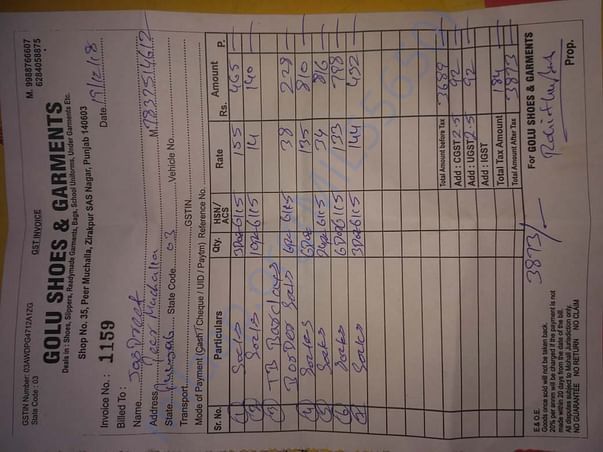 GSTIN Number: 03AWOPG4712A1ZG GST INVOICE M. 9988766607
State Code : 03 6284058875
GOLU SHOES & GARMENTS
Deals in : Shoes, Slippers, Readymade Garments, Bags, School Uniforms, Under Garments Etc.
Shop No. 35, Peer Muchalla, Zirakpur SAS Nagar, Punjab 140603
Invoice No.: 1159 Date 19/12/18
Billed To :
Name JasPreet
Address Peer Muchalla M.7837514612
State Punjab State Code 03 Vehicle No.
Transport GSTIN.
Mode of Payment (Cash / Cheque / UID / Paytm) Reference No.
Sr. No. Particulars Qty. HSN/ACS Rate Amount Rs. P.
(1) Socks 6115 155 465
(2) Socks 6115 14 140
(3) TB
6115 38 228
(4) Socks 6115 135 810
(5) Socks 6115 34 816
(6) Socks 6115 133 798
(7) Socks 6115 144 432
Total Amount before Tax 3689
Add : CGST 2.5 92
Add : UGST 2.5 92
Add : IGST
Total Tax Amount 184
Total Amount After Tax 3873
3873/-
E.& O.E.
Goods once sold will not be taken back.
20% per annum will be charged if the payment is not
made within 20 days from the date of the bill.
All disputes subject to Mohali Jurisdiction only.
NO GUARANTEE NO RETURN NO CLAIM
For GOLU SHOES & GARMENTS
Prop.